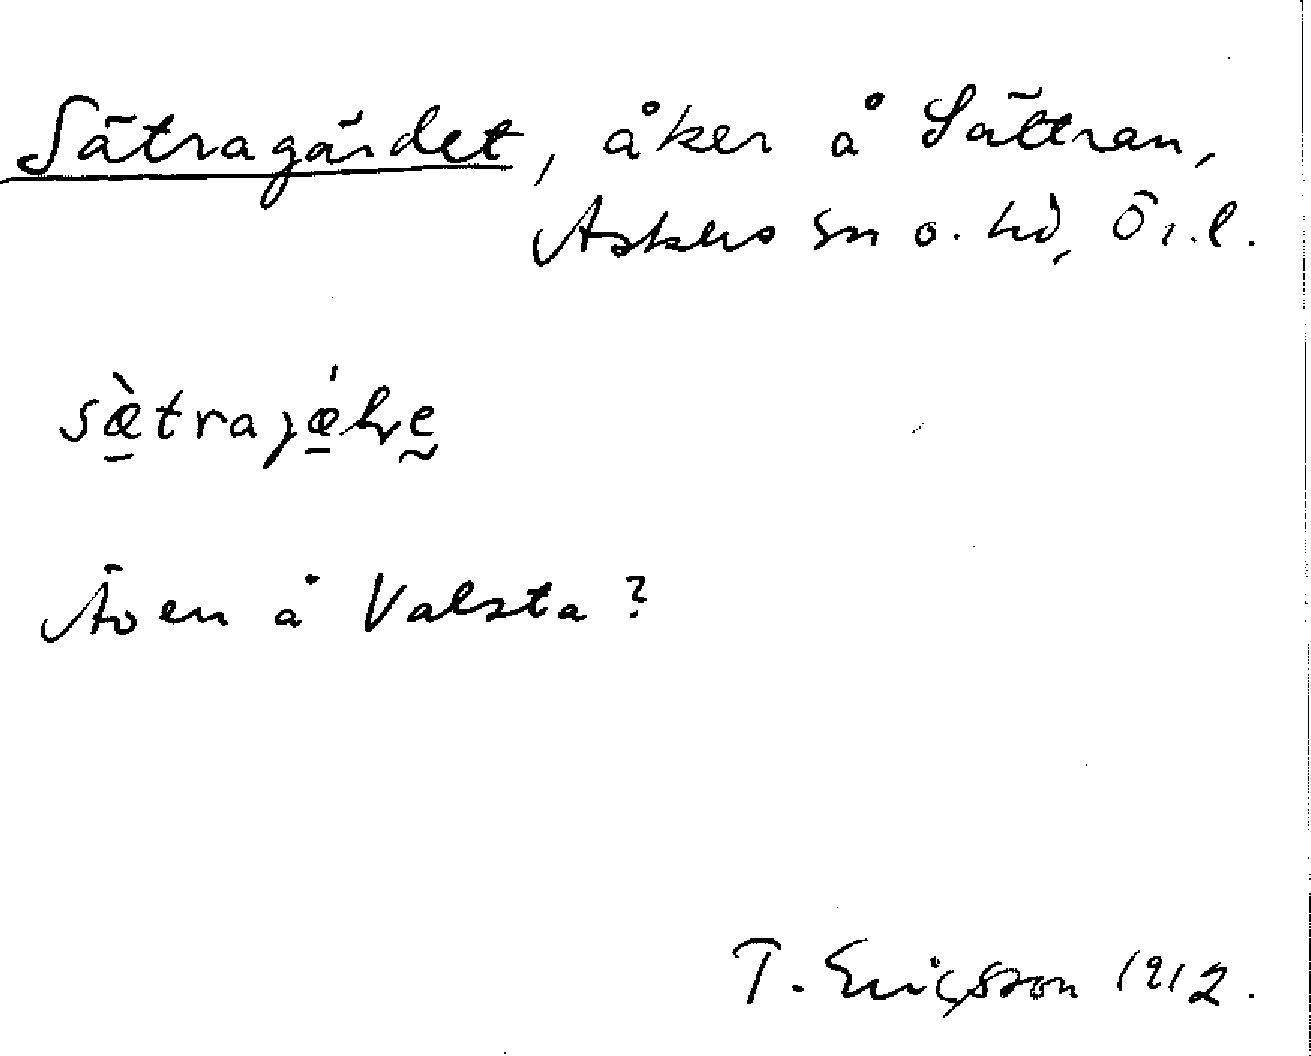 Sätragärdet, åker å Sättran,
Askers sn o. hd, Ör. l.
sæ̀trajǽ
Även å Valsta?
T. Ericsson 1912.